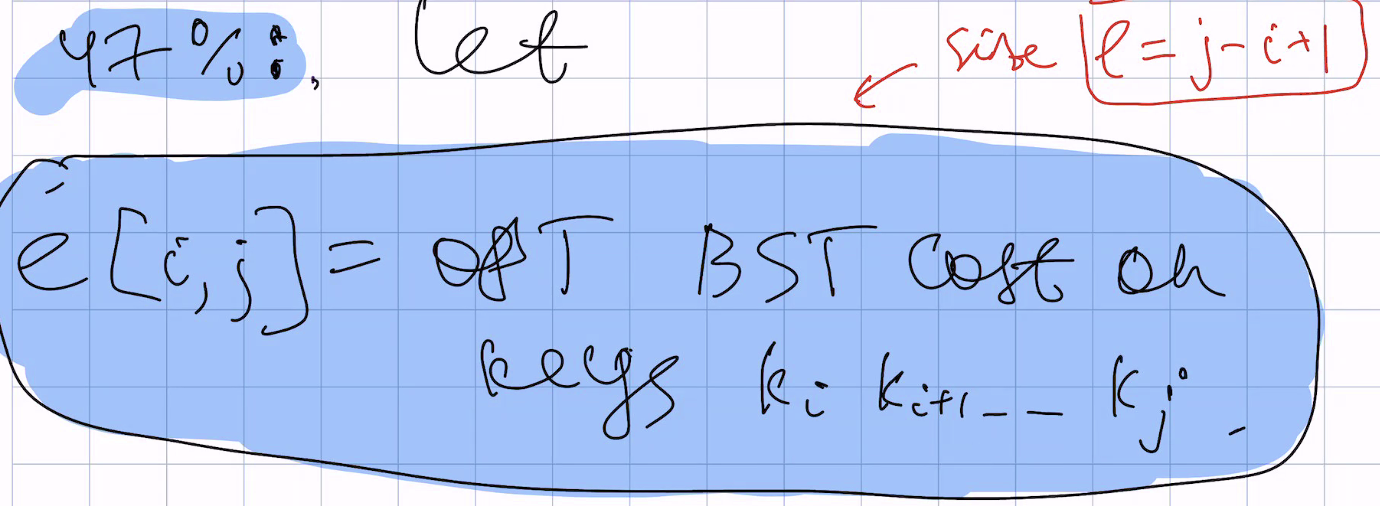 47%: let
size l = j - i + 1
e[i,j] = OPT BST cost on
keys ki ki+1 -- kj.